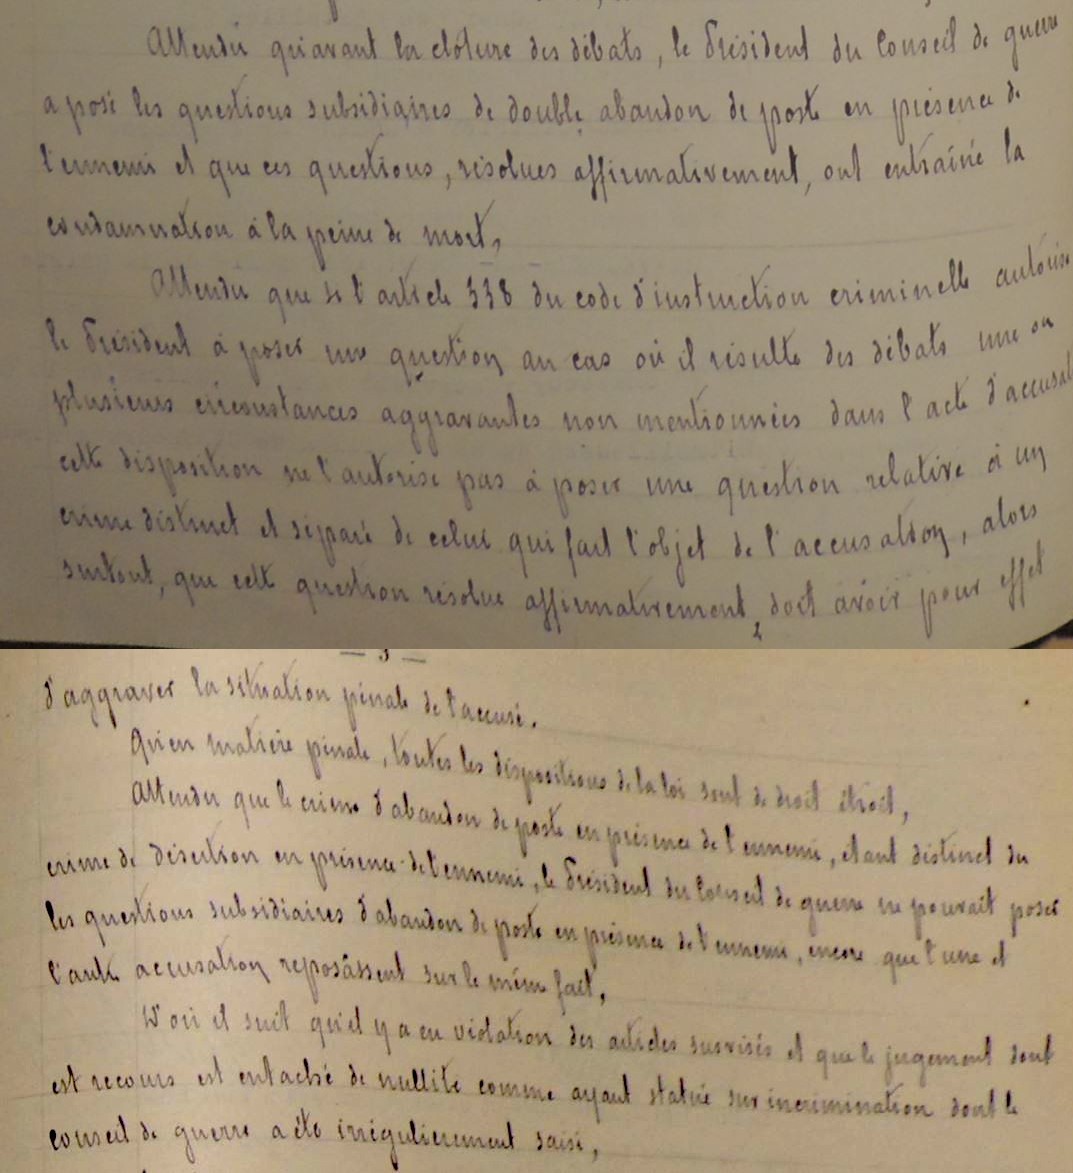 Attendu qu'avant la clôture des débats, le Président du Conseil de guerre
a posé les questions subsidiaires de double abandon de poste en présence de
l'ennemi et que ces questions, résolues affirmativement, ont entraîné la
condamnation à la peine de mort,
Attendu que si l'article 338 du code d'instruction criminelle autorise
le Président à poser une question au cas où il résulte des débats une ou
plusieurs circonstances aggravantes non mentionnées dans l'acte d'accusat
cette disposition ne l'autorise pas à poser une question relative à un
crime distinct et séparé de celui qui fait l'objet de l'accusation, alors
surtout, que cette question résolue affirmativement, doit avoir pour effet
— 3 —
d'aggraver la situation pénale de l'accusé.
Qu'en matière pénale, toutes les dispositions de la loi sont de droit étroit,
Attendu que le crime d'abandon de poste en présence de l'ennemi, étant distinct du
crime de désertion en présence de l'ennemi, le Président du Conseil de guerre ne pouvait poser
les questions subsidiaires d'abandon de poste en présence de l'ennemi, encore que l'une et
l'autre accusation reposâssent sur le même fait,
D'où il suit qu'il y a eu violation des articles susvisés et que le jugement dont
est recours est entaché de nullité comme ayant statué sur incrimination dont le
conseil de guerre a été irrégulièrement saisi,